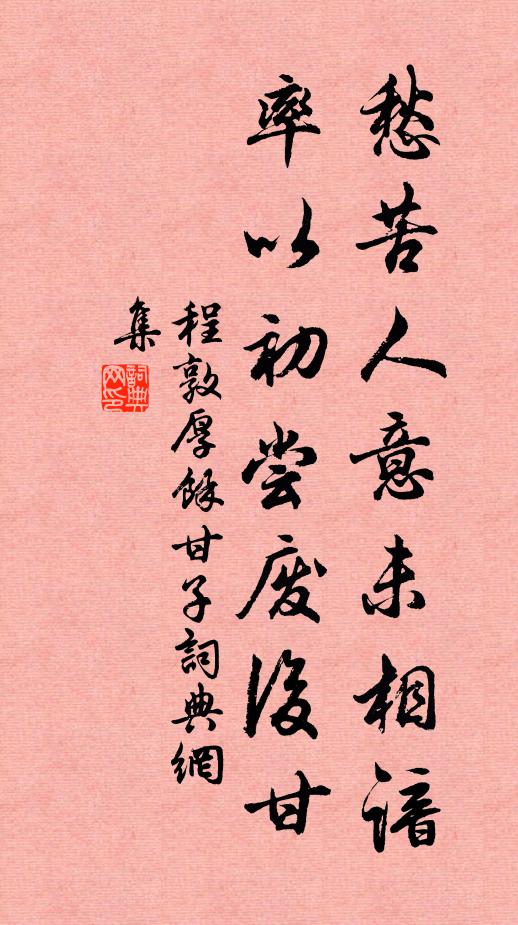 愁苦人意未相諳
率以初尝废後甘
程敦厚餘甘子詞典網
集
詞典
网印